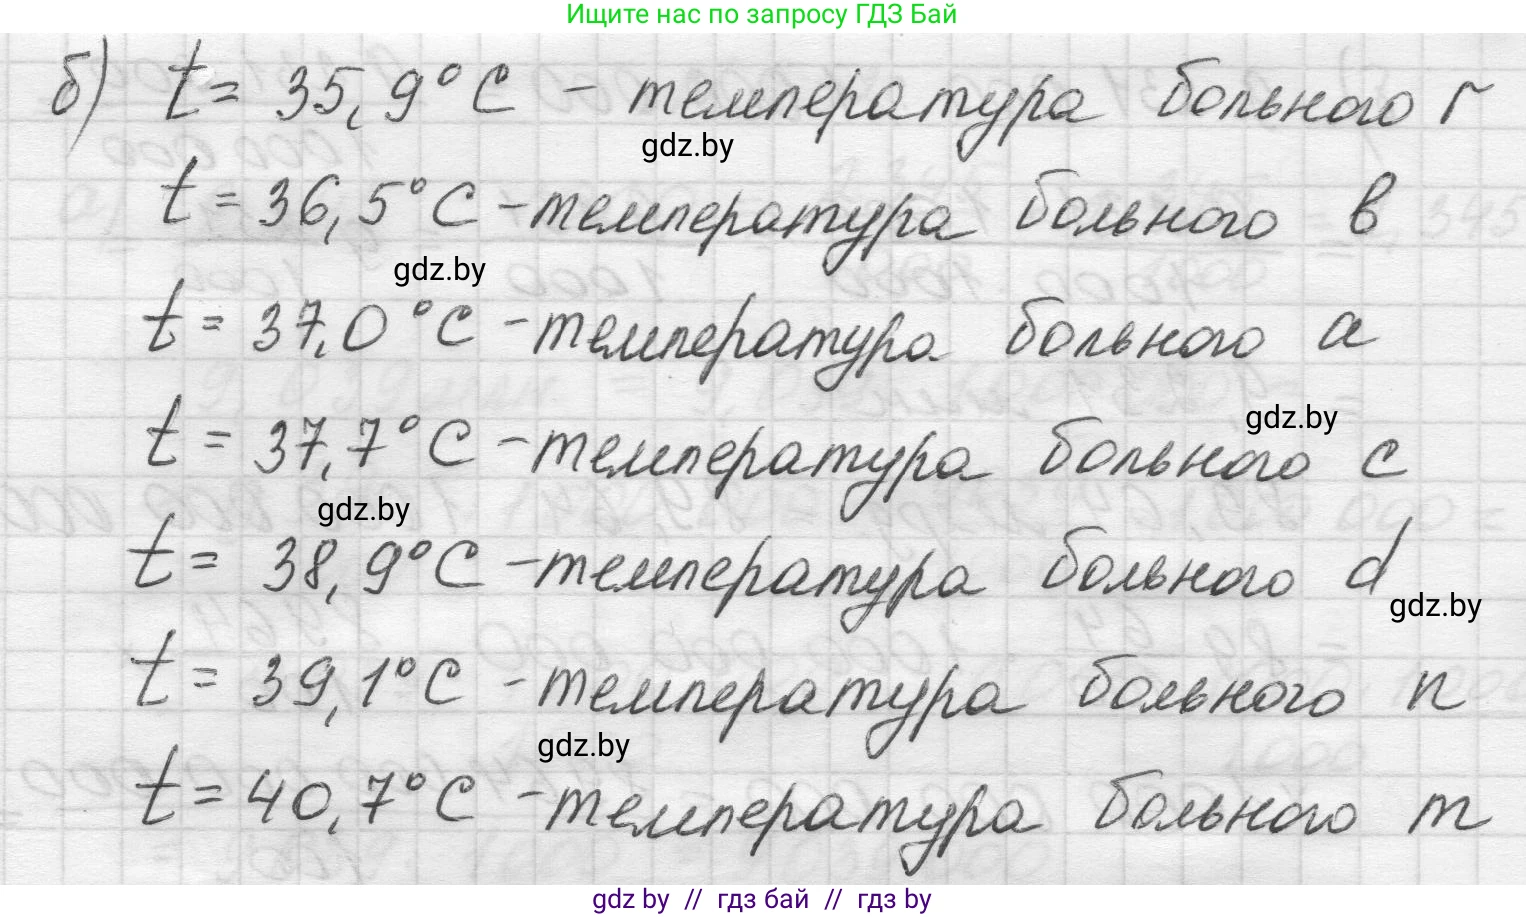 Ищите нас по запросу ГДЗ Бай
б) t = 35,9°C – температура больного r
gdz.by
t = 36,5°C – температура больного b
gdz.by
t = 37,0°C – температура больного a
gdz.by
t = 37,7°C – температура больного c
gdz.by
t = 38,9°C – температура больного d
gdz.by
t = 39,1°C – температура больного n
gdz.by
t = 40,7°C – температура больного m
gdz by // гдз бай // гдз by